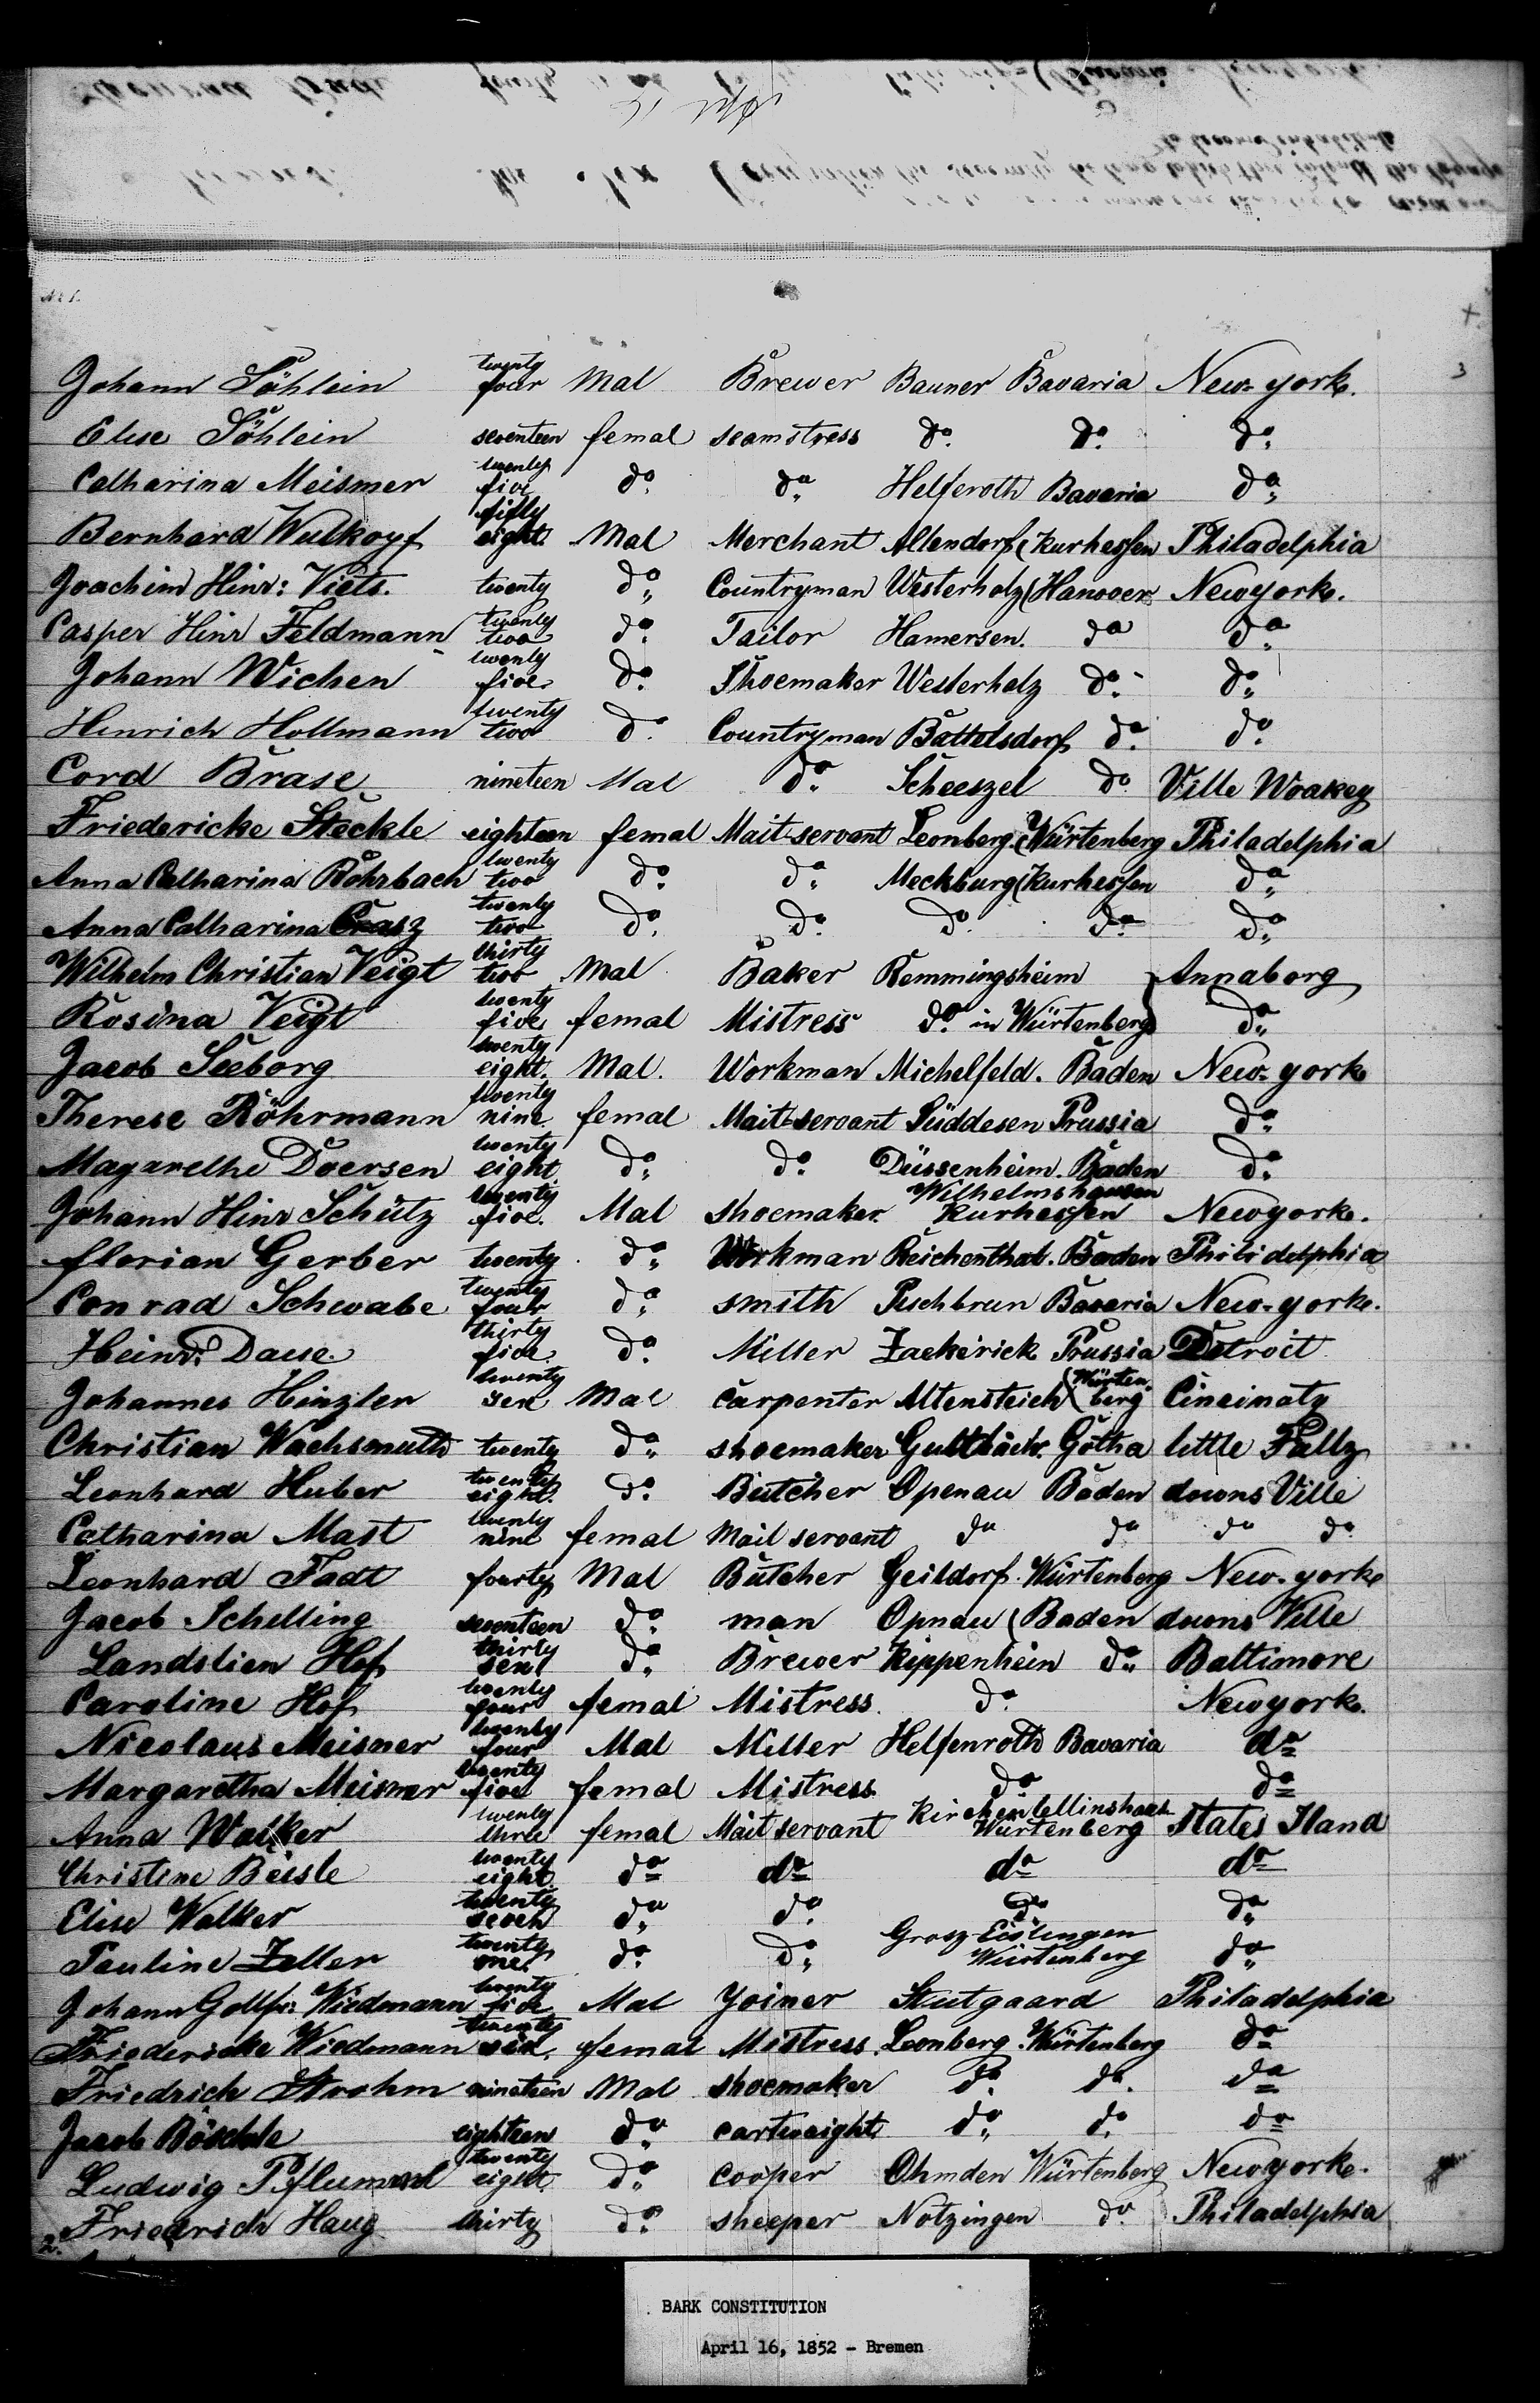 Johann Söhlein twenty four Mal Brewer Bauner Bavaria New-york.
Elise Söhlein seventeen femal seamstress do. do. do.
Catharina Meismer twenty five do. do. Helferoth Bavaria do.
Bernhard Walkopf fifty eight. Mal Merchant Allendorf (Kurhessen Philadelphia
Joachim Hinr: Viets. twenty do. Countryman Westerholz (Hanover Newyork.
Casper Hinr Feldmann twenty two do. Tailor Hamersen. do do.
Johann Wichen twenty five do. Shoemaker Westerholz do. do.
Hinrich Hollmann twenty two do. Countryman Battelsdorf do. do.
Cord Brase nineteen Mal do. Scheeszel do Ville Woakey
Friedericke Steckle eighteen femal Mait-servant Leonberg (Würtenberg Philadelphia
Anna Catharina Röhrbach twenty two do. do. Meckburg (Kurhessen do.
Anna Catharina Crasz twenty two do. do. do. do. do.
Wilhelm Christian Veigt thirty two Mal Baker Remmingsheim Annaborg
Rosina Veigt twenty five femal Mistress do. in Würtenberg) do.
Jacob Seeborg twenty eight. Mal. Workman Michelfeld. Baden New-york
Therese Röhrmann twenty nine femal Mait-servant Süddesen Prussia do.
Magarethe Doersen twenty eight do. do. Düssenheim. Baden do.
Johann Hinr Schütz twenty five. Mal shoemaker. Wilhelmshausen Kurhessen Newyork.
florian Gerber twenty do. Workman Reichenthal. Baden Philidelphia
Conrad Schwabe twenty four do. smith Peschbrun Bavaria New-york.
Heinr: Daue. thirty five do. Miller Zaekerick Prussia Detroit
Johannes Hinzler twenty sex Mal carpenter Altensteich (Würtenberg Cincinaty
Christian Wachsmuth twenty do. shoemaker Gotha little Fallz
Leonhard Huber twenty eight. do. Butcher Openau Baden downs Ville
Catharina Mast twenty nine femal Mait servant do do do do.
Leonhard Fadt fourty Mal Butcher Geildorf. Würtenberg New-york
Jacob Schelling seventeen do. man Opnau (Baden downs Ville
Landolien Hof thirty sex do. Brewer Kippenhein do. Baltimore
Caroline Hof twenty four femal Mistress. do. Newyork.
Nicolaus Meismer twenty four Mal Miller Helfenroth Bavaria do
Margaretha Meismer twenty five femal Mistress. do. do
Anna Walker twenty three femal Mait servant Würtenberg States Iland
Christine Beisle twenty eight. do do do do
Elise Walker twenty seven do. do. do. do.
Pauline Zeller twenty one. do. do. Grosz Eislingen Würtenberg do.
Johann Gottfr: Wiedmann twenty five Mal Joiner Stutgaard Philadelphia
Friedericke Wiedmann twenty six. femal Mistress. Leonberg. Würtenberg do
Friedrich Strohm nineteen Mal shoemaker do. do. do
Jacob Böschle eighteen do. cartwright do. do. do
Ludwig Pflummel twenty eight do. cooper Ohmden Würtenberg Newyork.
2. Friedrich Haug thirty do. sheeper Notzingen do. Philadelphia
BARK CONSTITUTION
April 16, 1852 - Bremen